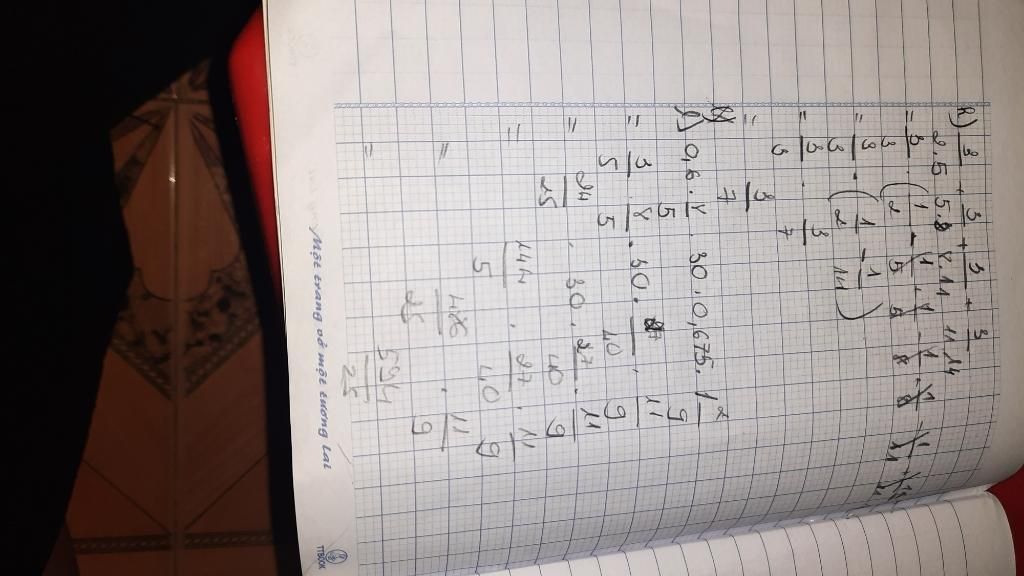 k) 3/2.5 + 3/5.8 + 3/8.11 + 3/11.14
= 3/3 . (1/2 - 1/5 + 1/5 - 1/8 +
= 3/3 . (1/2 - 1/11)
= 3/3 . 3/7
= 3/7
l) 0,6 . 8/5 . 30 . 0,675 . 1 2/9
= 3/5 . 8/5 . 30 . 27/40 . 11/9
= 24/25 . 30 . 27/40 . 11/9
= 144/5 . 27/40 . 11/9
= 486/25 . 11/9
= 594/25
Một trang vở một tương lai